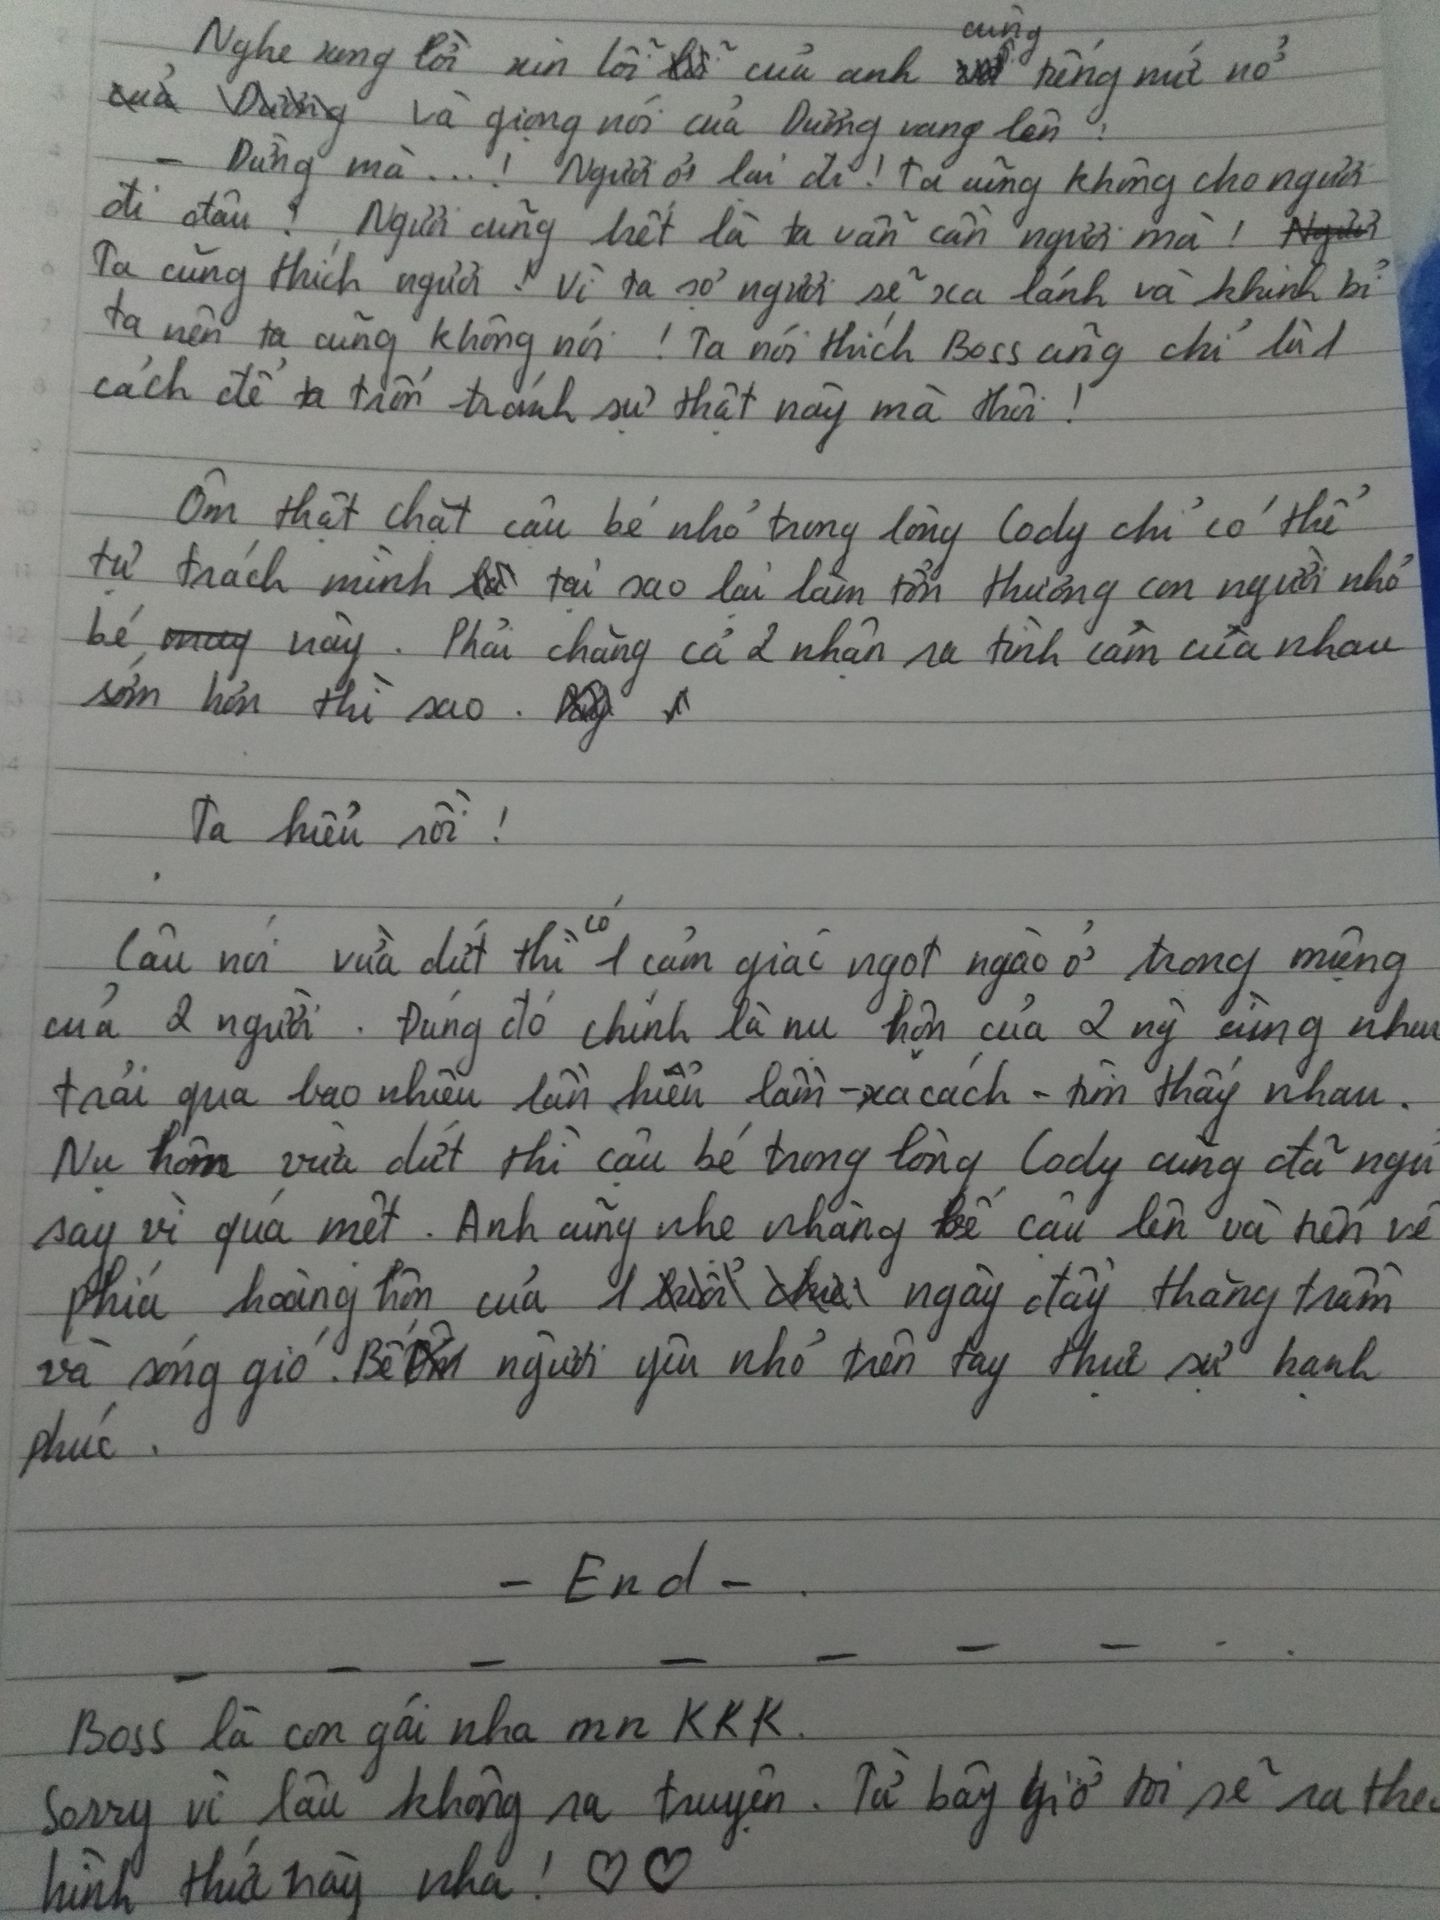 Nghe xong lời xin lỗi của anh cùng tiếng nứt nở
của Dương và giọng nói của Dương vang lên :
- Đừng mà ...! Ngươi ở lại đi ! Ta cũng không cho ngươi
đi đâu ! Ngươi cũng biết là ta vẫn cần ngươi mà ! Ngươi
Ta cũng thích ngươi ! Vì ta sợ ngươi sẽ xa lánh và khinh bỉ
ta nên ta cũng không nói ! Ta nói thích Boss cũng chỉ là 1
cách để ta trốn tránh sự thật này mà thôi !
Ôm thật chặt cậu bé nhỏ trong lòng Cody chỉ có thể
tự trách mình tại sao lại làm tổn thương con người nhỏ
bé này . Phải chăng cả 2 nhận ra tình cảm của nhau
sớm hơn thì sao .
Ta hiểu rồi !
Câu nói vừa dứt thì có 1 cảm giác ngọt ngào ở trong miệng
của 2 người . Đúng đó chính là nụ hôn của 2 ng cùng nhau
trải qua bao nhiêu lần hiểu lầm - xa cách - tìm thấy nhau .
Nụ hôn vừa dứt thì cậu bé trong lòng Cody cũng đã ngủ
say vì quá mệt . Anh cũng nhẹ nhàng bế cậu lên và tiến về
phía hoàng hôn của 1 ngày đầy thăng trầm
và sóng gió . Bế người yêu nhỏ trên tay thực sự hạnh
phúc .
- End - .
Boss là con gái nha mn KKK.
Sorry vì lâu không ra truyện . Từ bây giờ tôi sẽ ra theo
hình thức này nha ! ♡♡